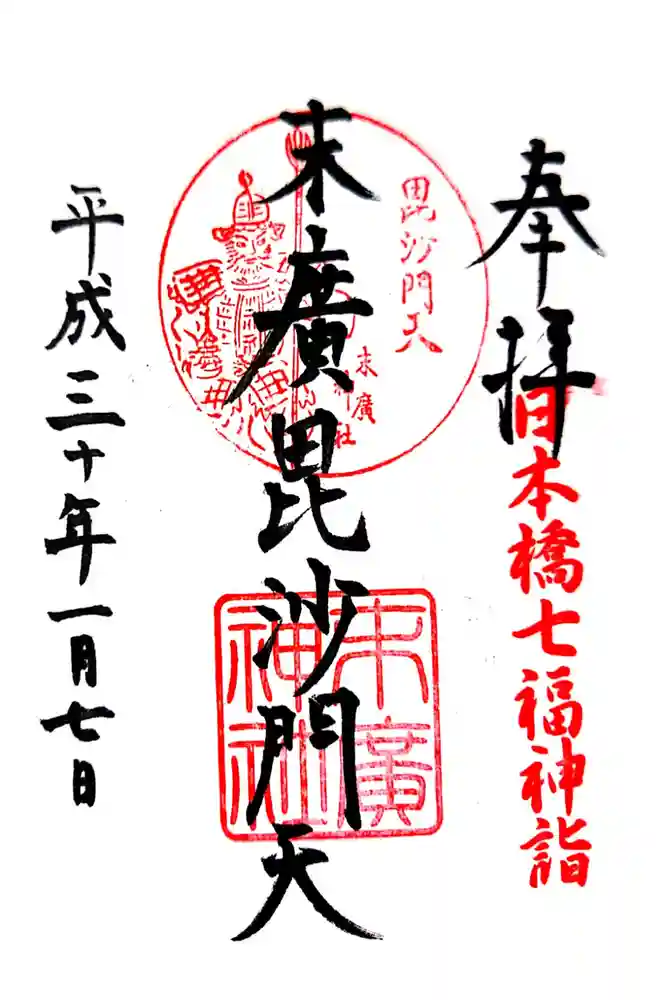 奉拝
日本橋七福神詣
末廣毘沙門天
毘沙門天
末廣神社
末廣神社
平成三十年一月七日